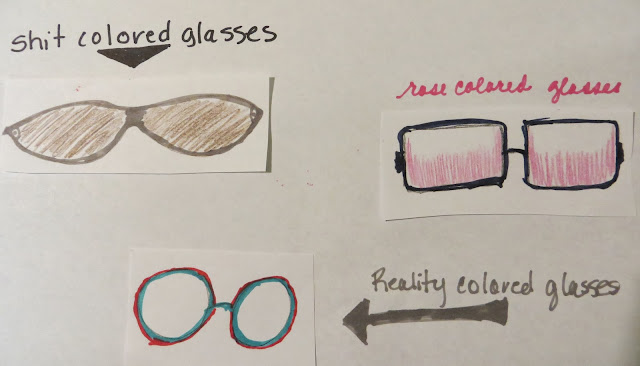 shit colored glasses
rose colored glasses
Reality colored glasses